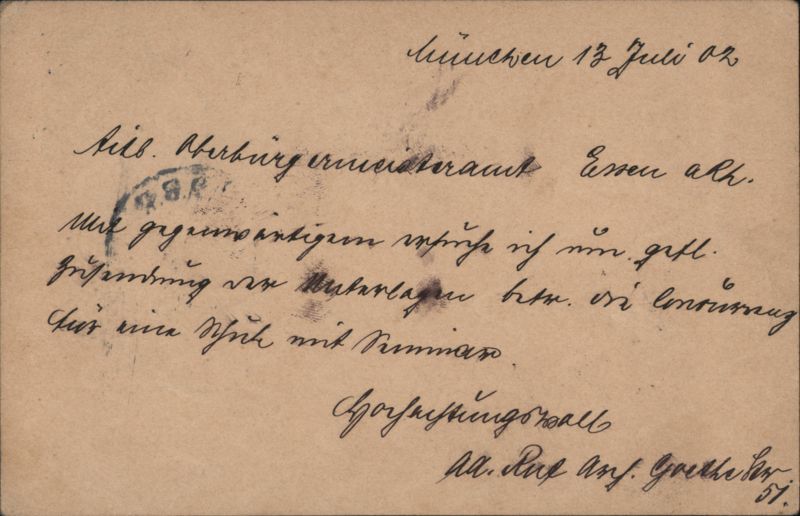 München 13 Juli 02
Titl. Oberbürgermeisteramt Essen a Rh.
Mit gegenwärtigem ersuche ich um gefl.
Zusendung der Unterlagen betr. die Concurrenz
für eine Schule mit Seminar
Hochachtungsvoll
Ad. Arch. Goethe Str
51.